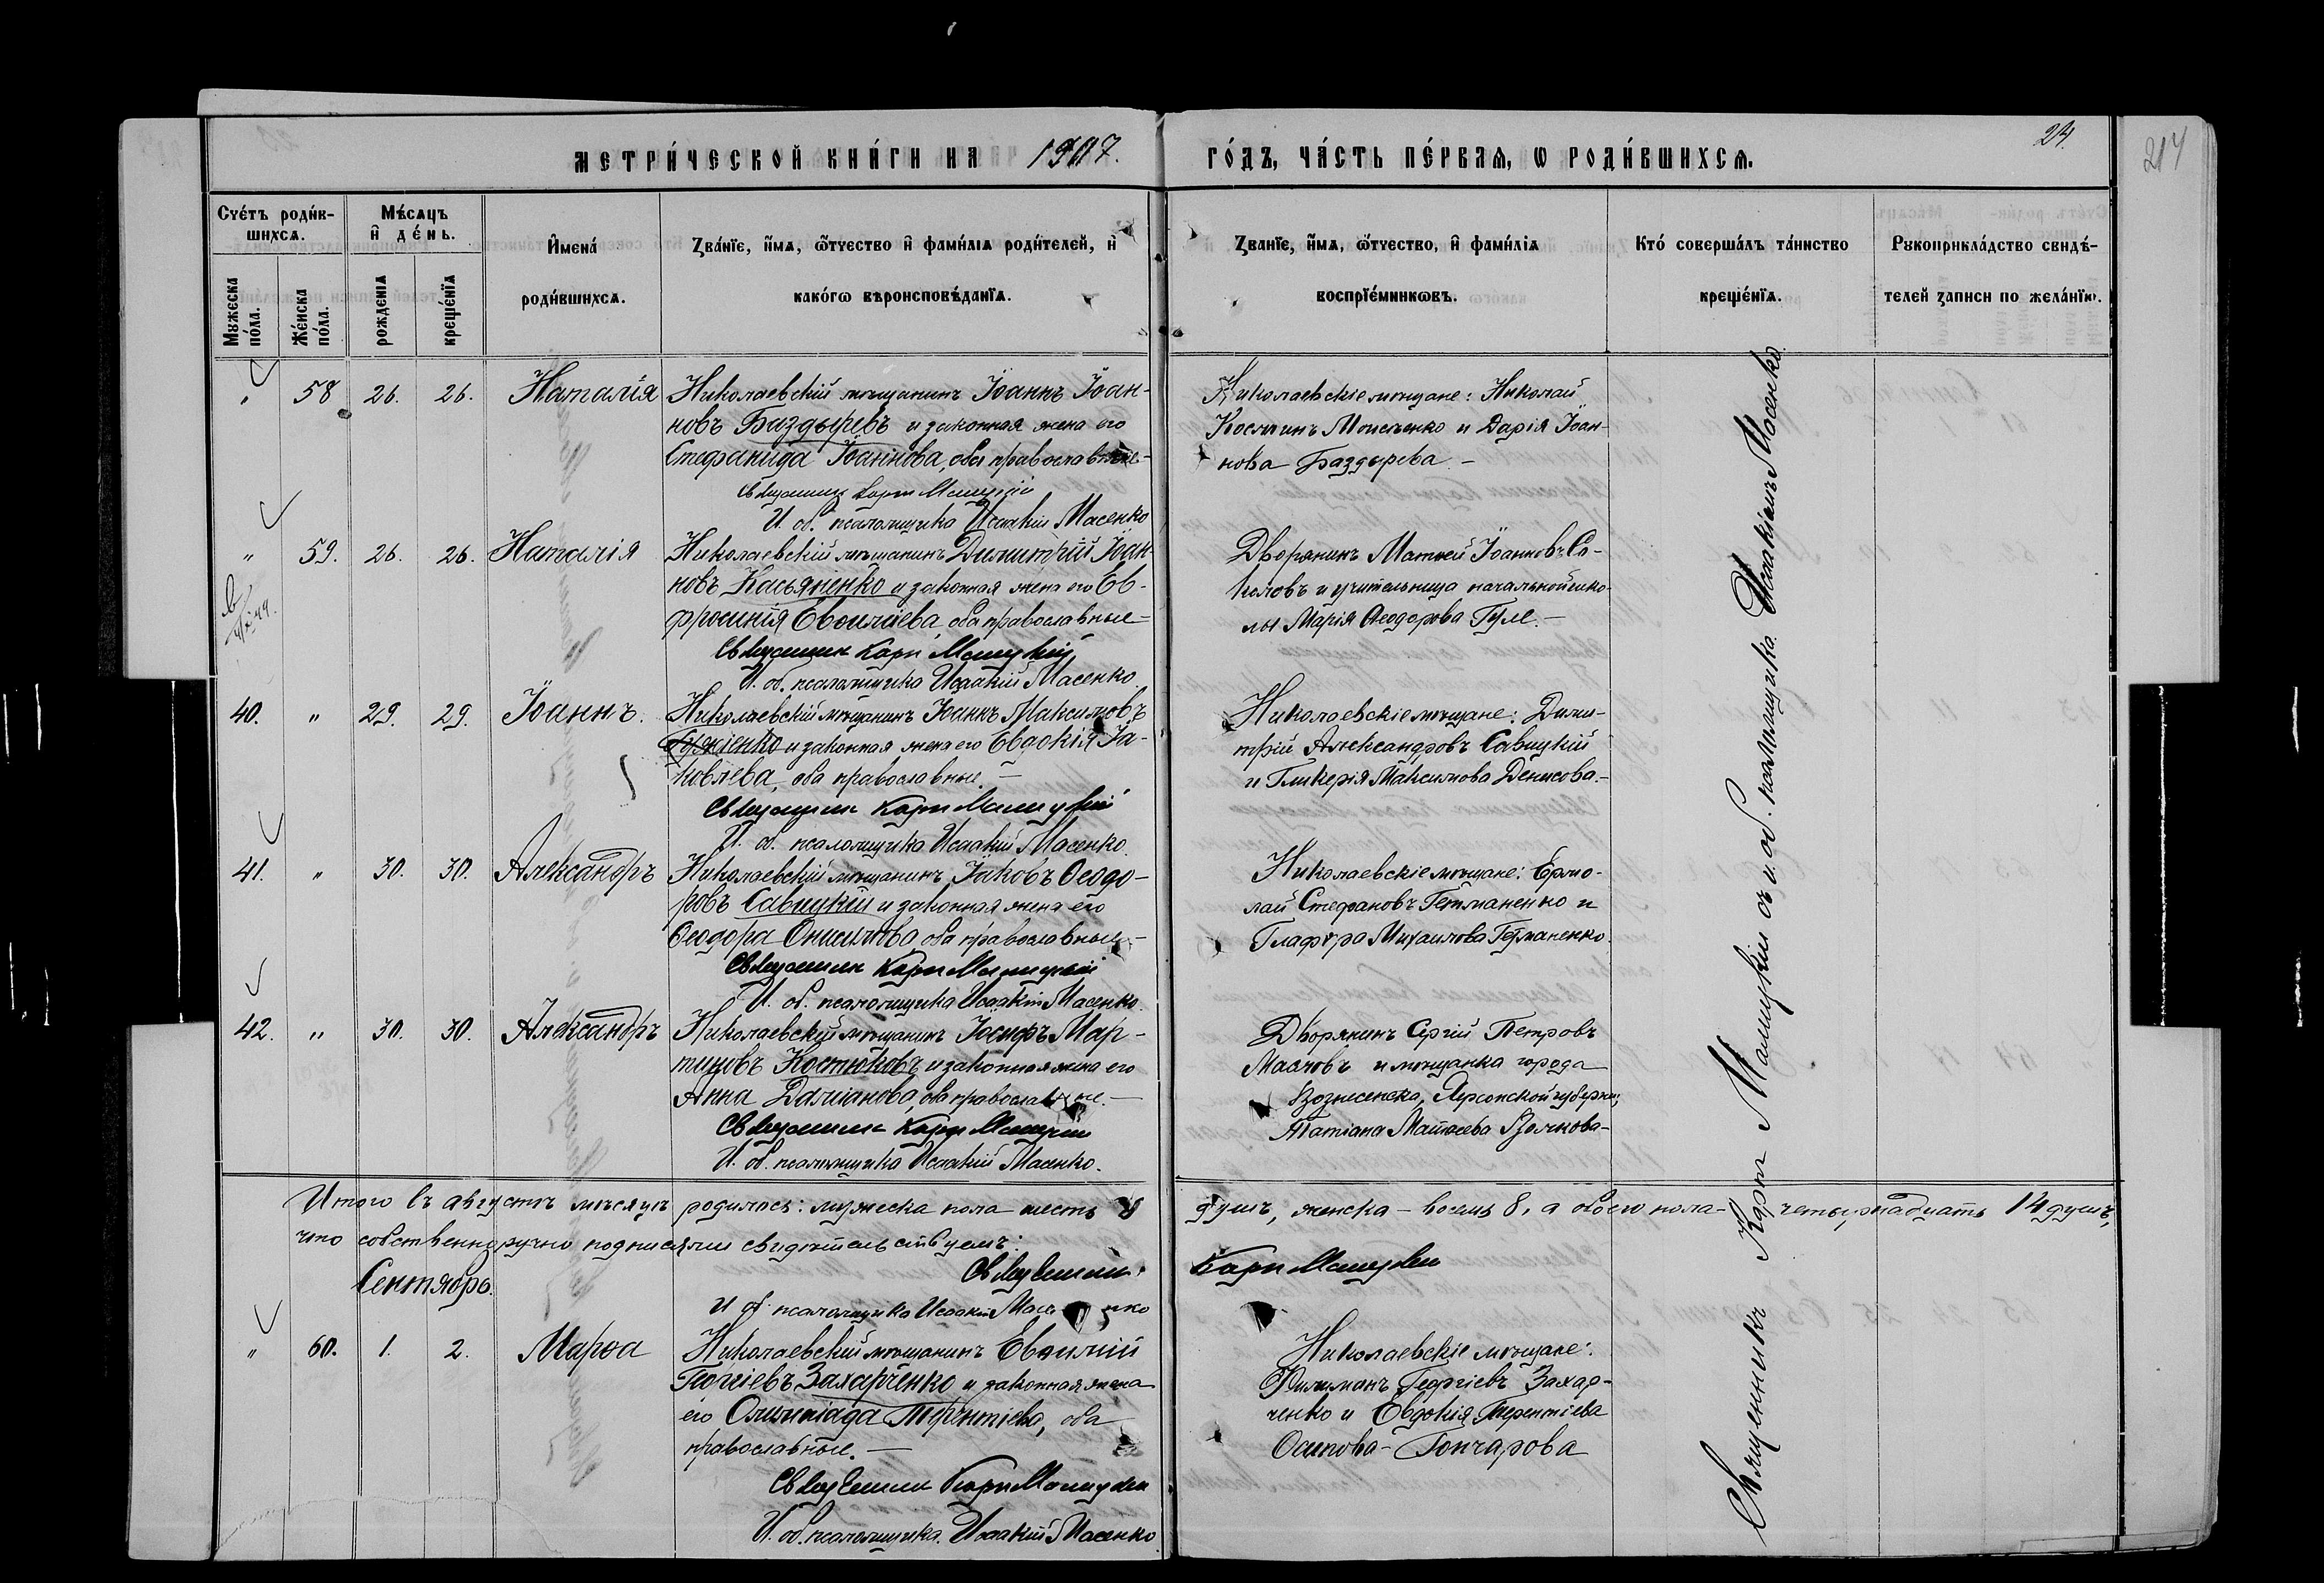 24.
214
МЕТРИ́ЧЕСКОЙ КНИ́ГИ НА 1907. ГО́ДЪ, ЧА́СТЬ ПЕ́РВАѦ, Ѡ РОДИ́ВШИХСѦ.
Сче́тъ роди́в-
шихсѧ.
Мꙋжеска по́ла.
Же́нска по́ла.
Мѣ́сѧцъ
и҆ де́нь.
рожденїѧ
креще́нїѧ
И҆мена́
роди́вшихсѧ.
Зва́нїе, и҆́мѧ, ѻ҆́тчество и҆ фами́лїѧ роди́телей, и҆
како́гѡ вѣроисповѣ́данїѧ.
Зва́нїе, и҆́мѧ, ѻ҆́тчество, и҆ фами́лїѧ
воспрїе́мникѡвъ.
Кто́ соверша́лъ та́инство
креще́нїѧ.
Рꙋкоприкла́дство свидѣ́-
телей записи по жела́нїю.
" 58 26. 26. Наталія
Николаевскій мѣщанинъ Іоаннъ Іоан-
новъ Баздыревъ и законная жена его
Стефанида Іоаннова, оба православные-
Священникъ Карпъ
И. об. псаломщика Исаакій Масенко
Николаевскіе мѣщане: Николай
Косминъ Моисеенко и Дарія Іоан-
нова Баздырева. -
" 59. 26. 26. Наталія
Николаевскій мѣщанинъ Димитрій Іоан-
новъ Касьяненко и законная жена его Ев-
фросинія Евѳиміева, оба православные-
Священникъ Карпъ
И. об. псаломщика Исаакій Масенко.
Дворянинъ Матѳей Іоанновъ Со-
коловъ и учительница начальной шко-
лы Марія Ѳеодорова Гуле. -
40. " 29. 29. Іоаннъ.
Николаевскій мѣщанинъ Іоаннъ Максимовъ
и законная жена его Евдокія Іа-
ковлева, оба православные. -
Священникъ Карпъ
И. об. псаломщика Исаакій Масенко.
Николаевскіе мѣщане: Дими-
трій Александровъ Савицкій
и Гликерія Максимова Денисова. -
41. " 30. 30. Александръ
Николаевскій мѣщанинъ Іаковъ Ѳеодо-
ровъ Савицкій и законная жена его
Ѳеодора Онисимова оба православные. -
Священникъ Карпъ
И. об. псаломщика Исаакій Масенко.
Николаевскіе мѣщане: Ермо-
лай Стефановъ Гетманенко и
Глафѵра Михаилова Гетманенко.
42. " 30. 30. Александръ
Николаевскій мѣщанинъ Іосифъ Мар-
тиновъ Костюковъ и законная жена его
Анна Даміанова, оба православные. -
Священникъ Карпъ
И. об. псаломщика Исаакій Масенко.
Дворянинъ Сергій Петровъ
Масловъ и мѣщанка города
Вознесенска, Херсонской губерніи,
Татіана Матѳеева Волкова-
Итого въ августѣ мѣсяцѣ родилось: мужеска пола шесть душъ, женска - восемь 8, а обоего пола - четырнадцать 14 душъ,
что собственноручно подписями свидѣтельствуемъ:
Священникъ Карпъ
И об. псаломщика Исаакій Масенко
Сентябрь.
" 60. 1. 2. Марѳа
Николаевскій мѣщанинъ Евѳимій
Георгіевъ Захарченко и законная жена
его Олимпіада Терентіева, оба
православные. -
Священникъ Карпъ
И. об. псаломщика. Исаакій Масенко
Николаевскіе мѣщане:
Филимонъ Георгіевъ Захар-
ченко и Евдокія Терентіева
Осипова - Гончарова
Священникъ Карпъ съ и. об. псаломщика Исаакіемъ Масенко